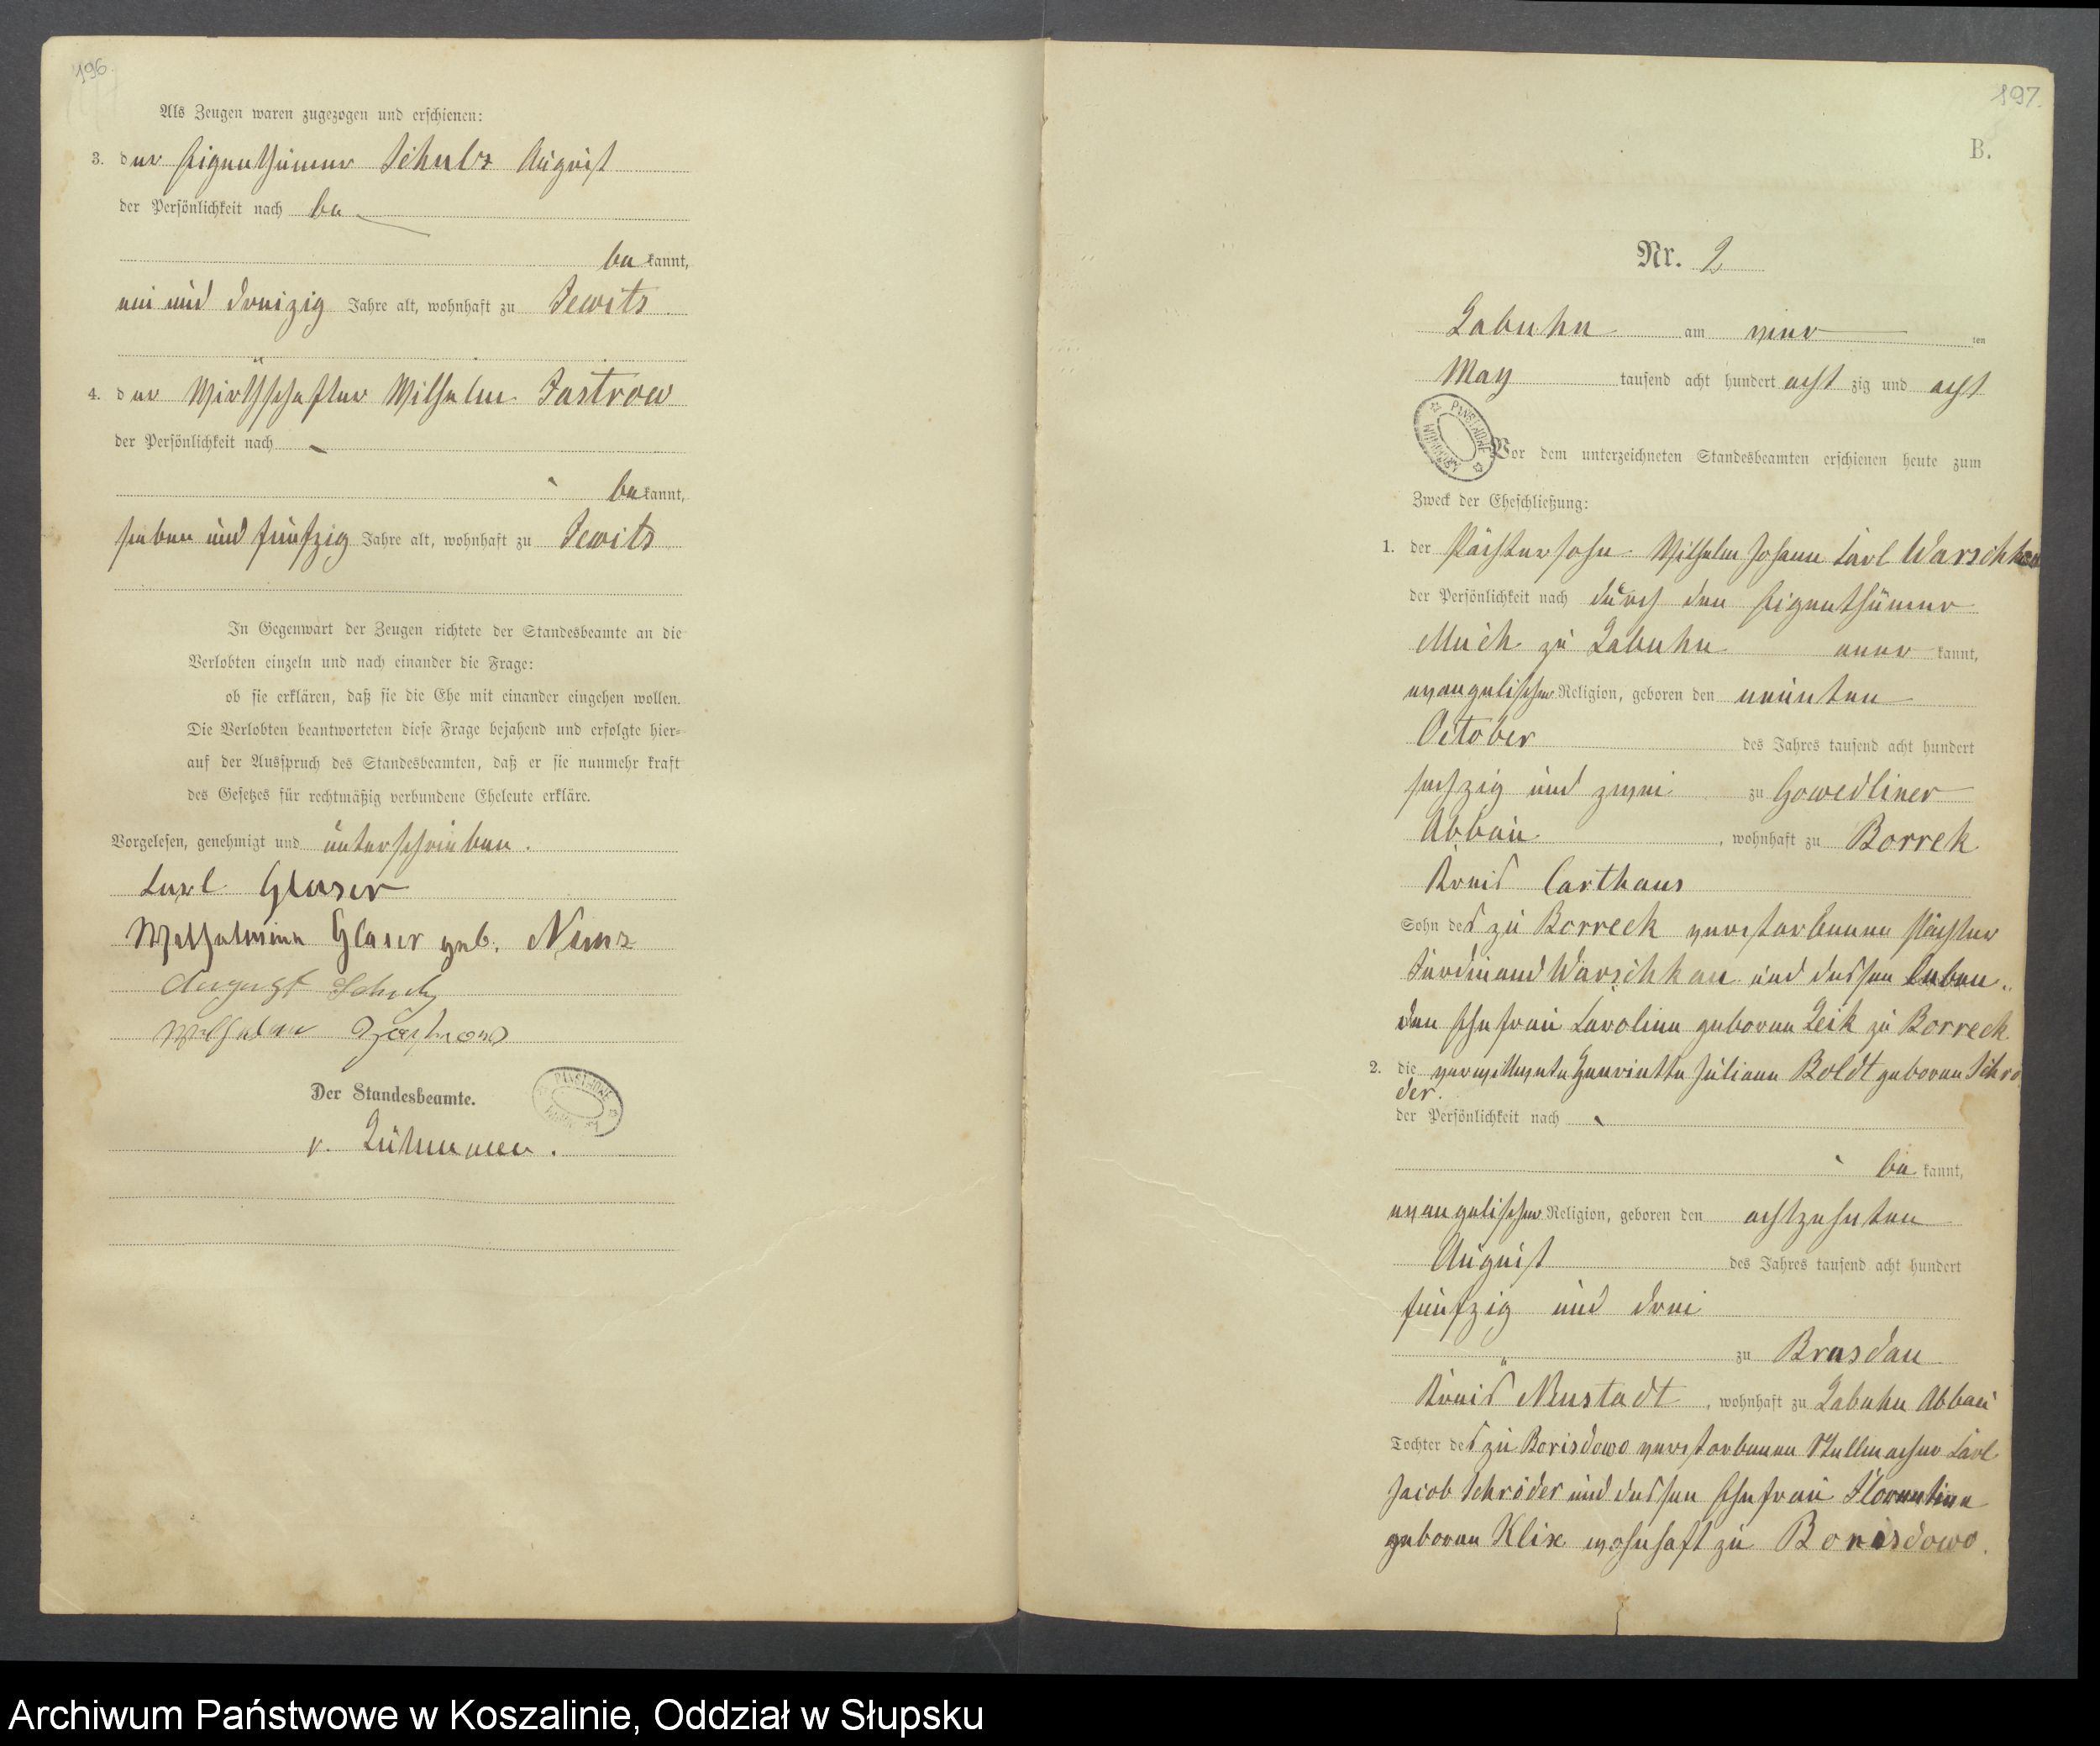 196.
Als Zeugen waren zugezogen und erschienen:
3. der Eigenthümer Schulz August
der Persönlichkeit nach be
bekannt,
ein und dreizig Jahre alt, wohnhaft zu Jewitz
4. der Wirthschafter Wilhelm Jastrow
der Persönlichkeit nach
bekannt,
sieben und fünfzig Jahre alt, wohnhaft zu Jewitz
In Gegenwart der Zeugen richtete der Standesbeamte an die
Verlobten einzeln und nach einander die Frage:
ob sie erklären, daß sie die Ehe mit einander eingehen wollen.
Die Verlobten beantworteten diese Frage bejahend und erfolgte hier=
auf der Ausspruch des Standesbeamten, daß er sie nunmehr kraft
des Gesetzes für rechtmäßig verbundene Eheleute erkläre.
Vorgelesen, genehmigt und unterschrieben.
Carl Glaser
Wilhelmine Glaser geb. Nimz
August Schulz
Wilhelm Jastrow
Der Standesbeamte.
v. Lühmann.
197.
B.
Nr. 2
Labuhn am vier ten
May tausend acht hundert acht zig und acht
Vor dem unterzeichneten Standesbeamten erschienen heute zum
Zweck der Eheschließung:
1. der Pächtersohn Wilhelm Johann Carl Warschkau
der Persönlichkeit nach durch den Eigenthümer
Much zu Labuhn aner kannt,
evangelischer Religion, geboren den neunten
October des Jahres tausend acht hundert
sechzig und zwei zu Gowedliner
Abbau, wohnhaft zu Borrek
Kreis Carthaus
Sohn des zu Borreck verstorbenen Pächter
Ferdinand Warschkau und dessen leben-
den Ehefrau Caroline geborene Leik zu Borreck
2. die verwittwete Henriette Juliane Boldt geborene Schrö
der.
der Persönlichkeit nach
be kannt,
evangelischer Religion, geboren den achtzehnten
August des Jahres tausend acht hundert
fünfzig und drei
zu Brusdau
Kreis Neustadt, wohnhaft zu Labuhn Abbau
Tochter des zu Borisdowo verstorbenen Stellmacher Carl
Jacob Schröder und dessen Ehefrau Florentine
geborene Klix wohnhaft zu Borisdowo.
Archiwum Państwowe w Koszalinie, Oddział w Słupsku